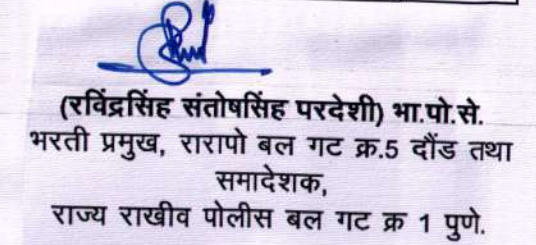 (रविंद्रसिंह संतोषसिंह परदेशी) भा.पो.से.
भरती प्रमुख, रारापो बल गट क्र.5 दौंड तथा
समादेशक,
राज्य राखीव पोलीस बल गट क्र 1 पुणे.